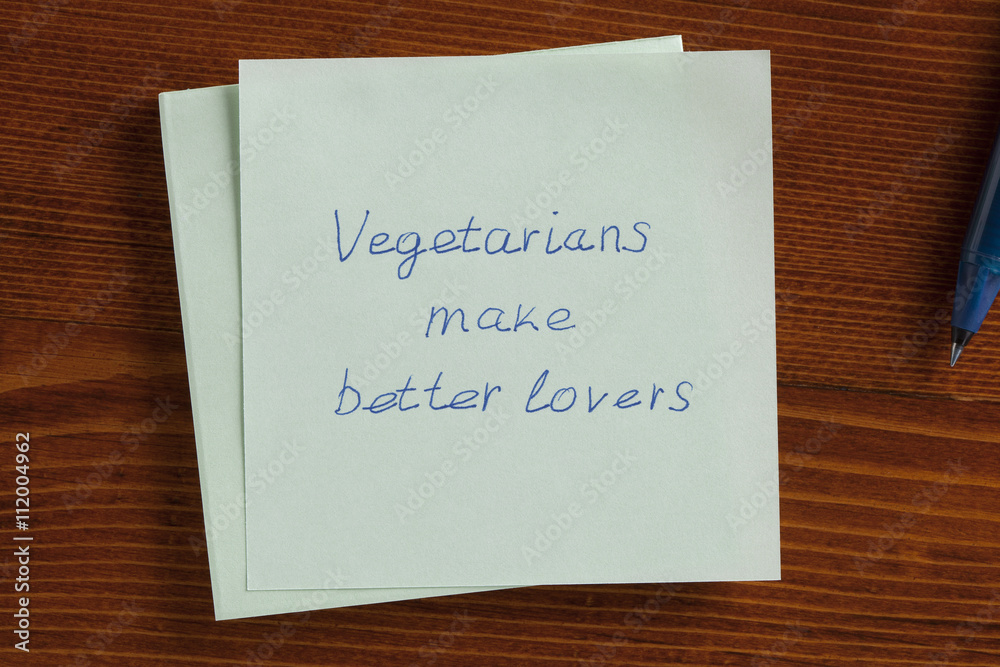 Vegetarians
make
better lovers
Adobe Stock | #112004962